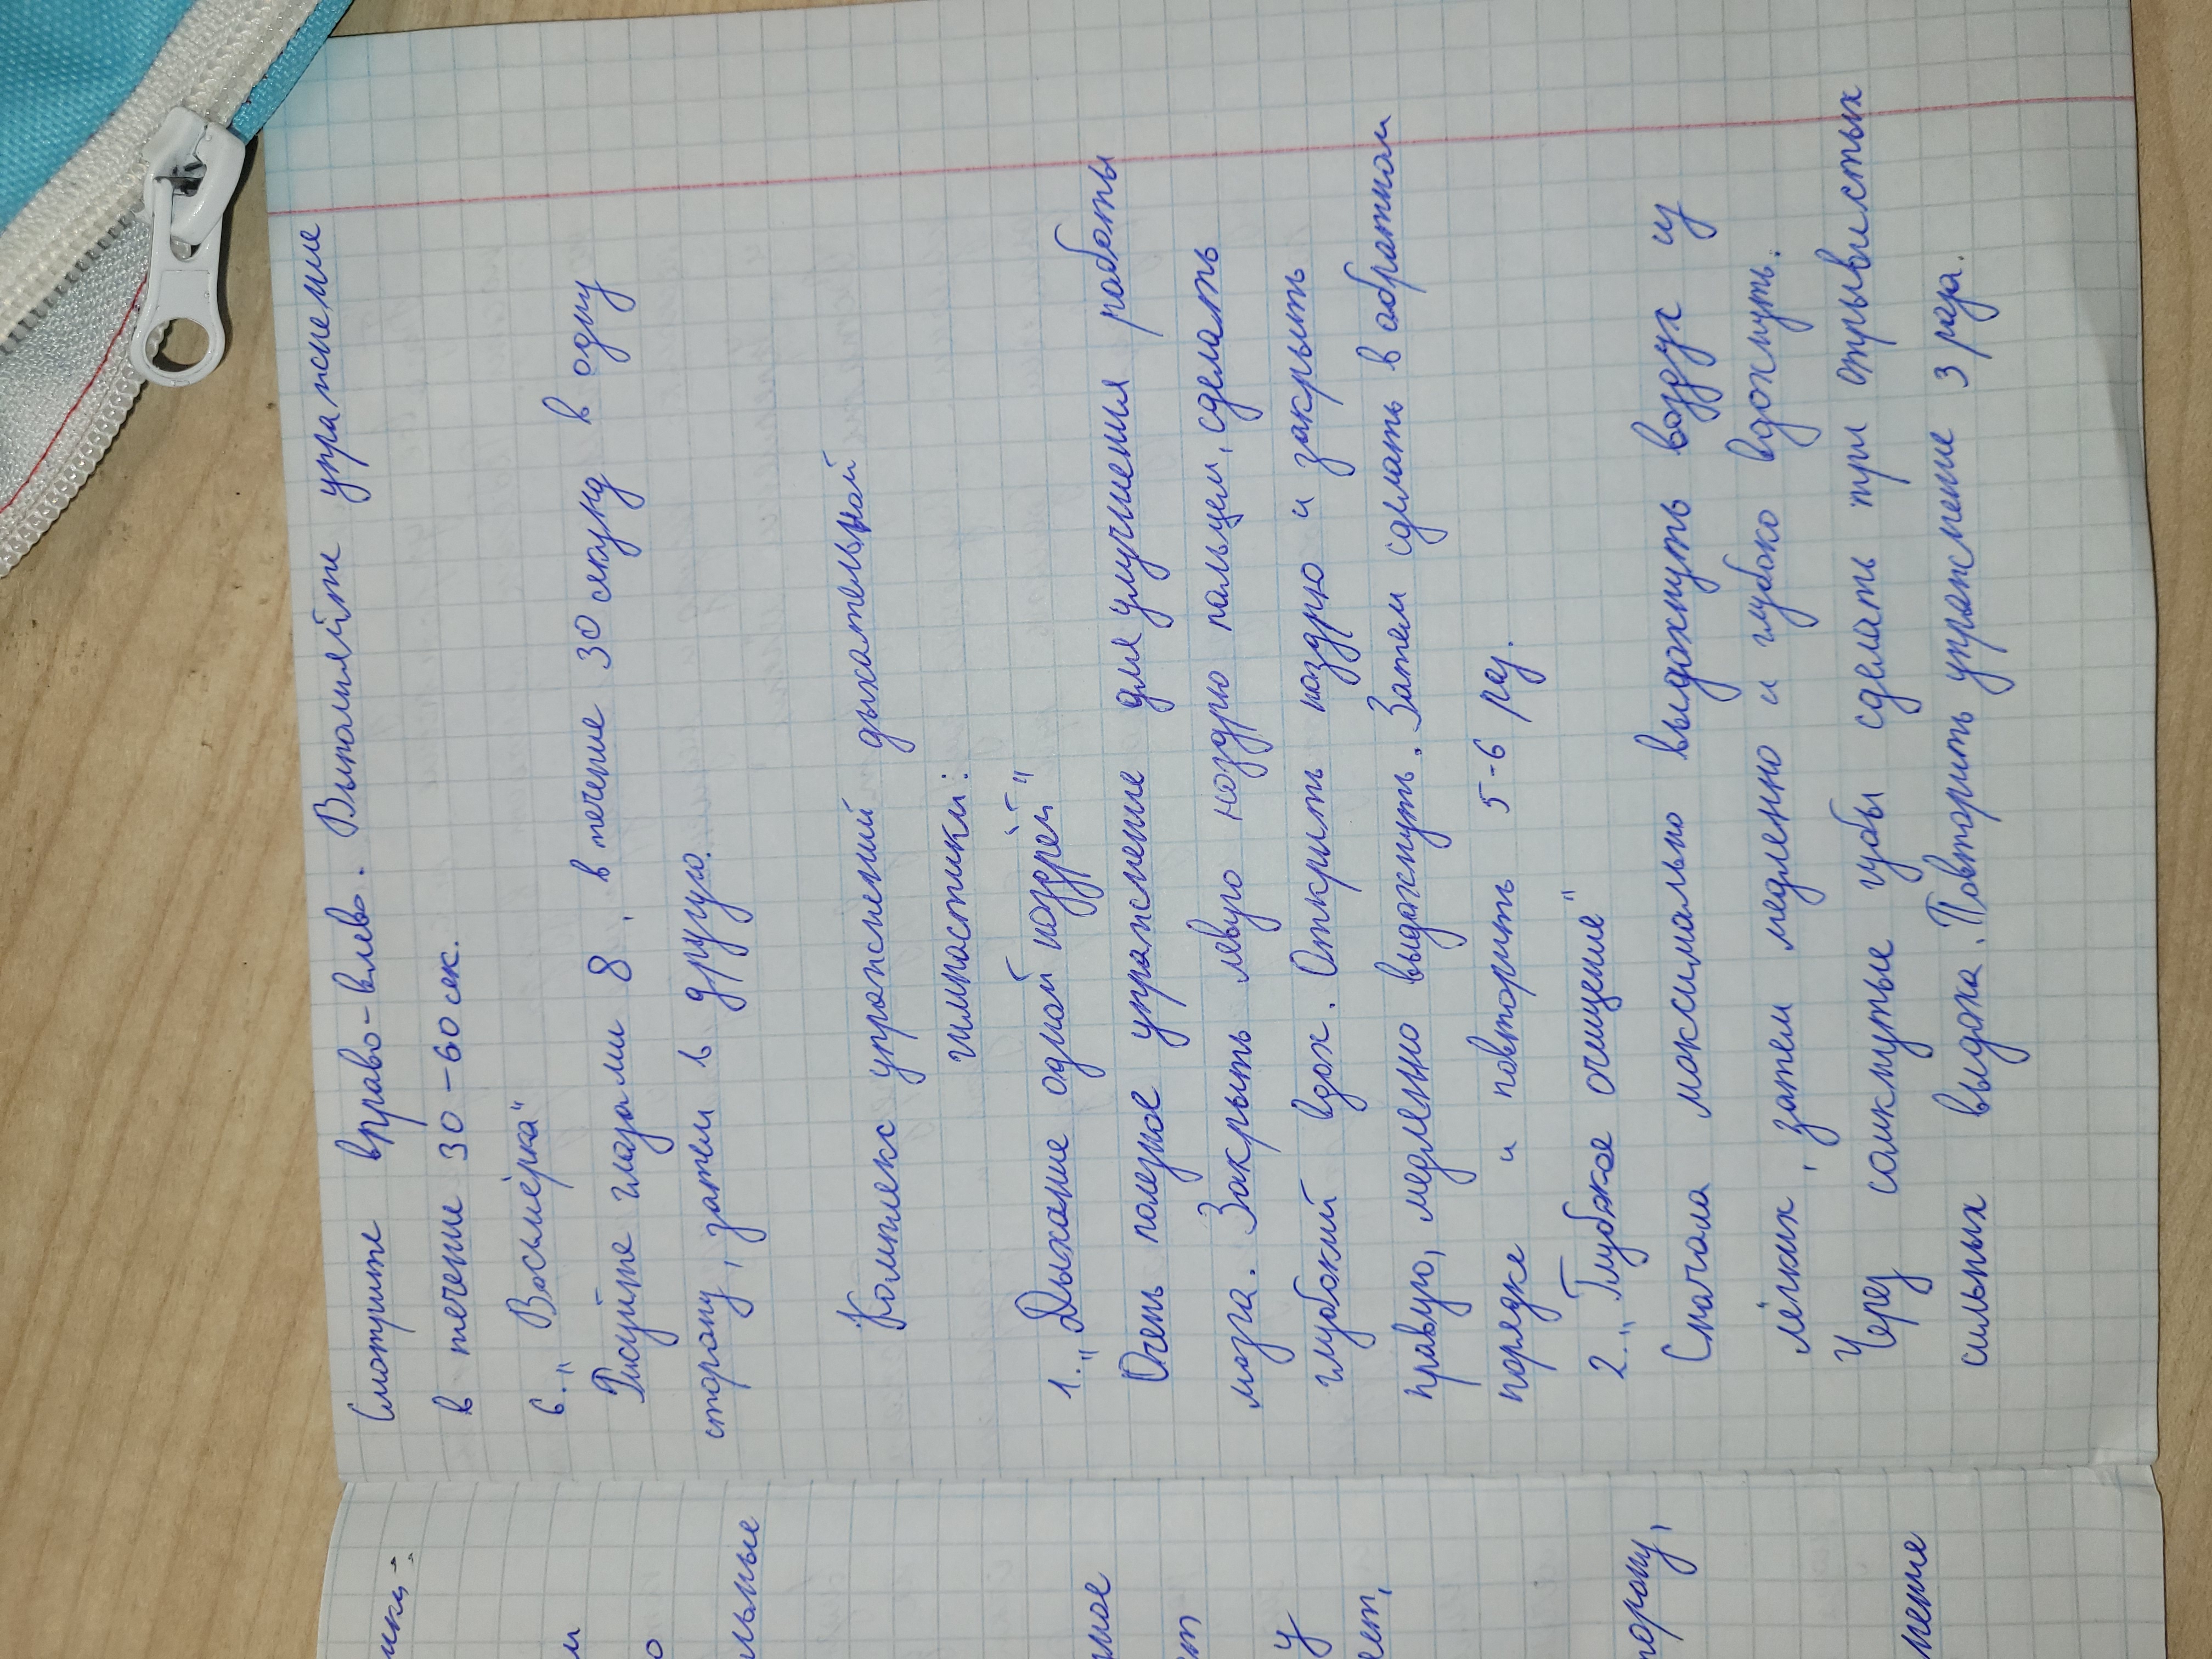 нки-
м
о
льные
ное
ет
у
ет,
торону,
нение
Смотрите вправо-влево. Выполняйте упражнение
в течение 30-60 сек.
6. „Восьмёрка"
Рисуйте глазами 8, в течение 30 секунд в одну
сторону, затем в другую.
Комплекс упражнений дыхательной
гимнастики:
1. „Дыхание одной ноздрёй"
Очень полезное упражнение для улучшения работы
мозга. Закрыть левую ноздрю пальцем, сделать
глубокий вдох. Открыть ноздрю и закрыть
правую, медленно выдохнуть. Затем сделать в обратном
порядке и повторить 5-6 раз.
2. „Глубокое очищение"
Сначала максимально выдохнуть воздух из
лёгких, затем медленно и глубоко вдохнуть.
Через сомкнутые губы сделать три отрывистых
сильных выдоха. Повторить упражнение 3 раза.